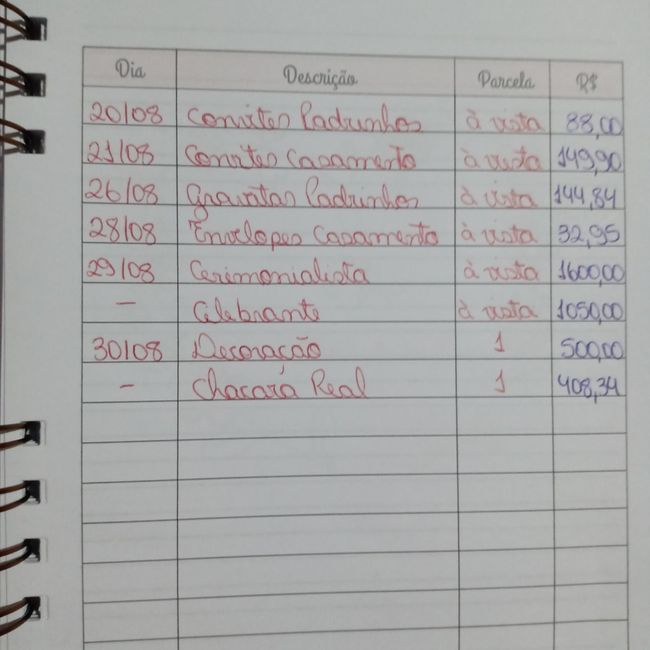 Dia Descrição Parcela R$
20/08 Convites Padrinhos à vista 88,00
21/08 Convites Casamento à vista 149,90
26/08 Gravatas Padrinhos à vista 144,84
28/08 Envelopes Casamento à vista 32,95
29/08 Cerimonialista à vista 1600,00
— Celebrante à vista 1050,00
30/08 Decoração 1 500,00
- Chácara Real 1 408,34